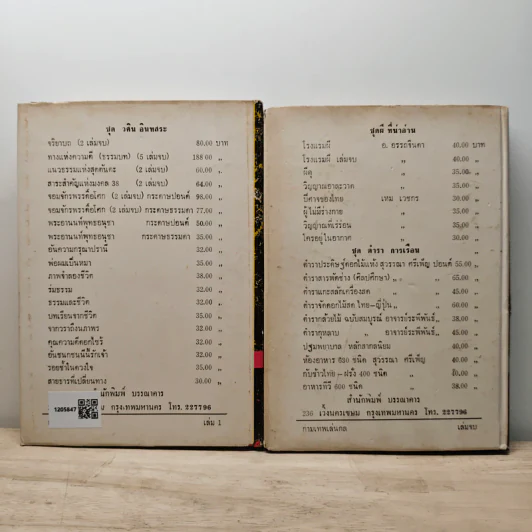 ชุด วศิน อินทสระ
จริยาบถ (3 เล่มจบ) 80.00 บาท
ทางแห่งความดี (ธรรมบท) (5 เล่มจบ) 188 00 „
แนวธรรมแห่งสุตตันตะ (2 เล่มจบ) 60.00 „
สาระสำคัญแห่งมงคล 38 (2 เล่มจบ) 64.00 „
จอมจักรพรรดิ์อโศก (2 เล่มจบ) กระดาษปอนด์ 98.00 „
จอมจักรพรรดิ์อโศก (2 เล่มจบ) กระดาษธรรมดา 77.00 „
พระอานนท์พุทธอนุชา กระดาษปอนด์ 50.00 „
พระอานนท์พุทธอนุชา กระดาษธรรมดา 35.00 „
อันความกรุณาปรานี 32.00 „
พ่อผมเป็นหมา 35.00 „
ภาพจำลองชีวิต 38.00 „
ร่มธรรม 32.00 „
ธรรมและชีวิต 32.00 „
บทเรียนจากชีวิต 35.00 „
จากวาเรถึงนภาพร 32.00 „
คุณความดีดอกใชร้ 32.00 „
อันชนกชนนีนี้รักเจ้า 32.00 „
รอยช้ำในดวงใจ 35.00 „
สายธารที่เปลี่ยนทาง 30.00 „
สำนักพิมพ์ บรรณาคาร
กรุงเทพมหานคร โทร. 227796
เล่ม 1
1205847
ชุดผี ที่น่าอ่าน
โรงแรมผี อ. อรรถจินดา 40.00 บาท
โรงแรมผี เล่มจบ „ 40.00 „
ผีดุ „ 35.00 „
วิญญาณอาละวาด „ 35.00 „
ปีศาจของไทย เหม เวชกร 30.00 „
ผู้ไม่มีร่างกาย „ 25.00 „
วิญญาณที่เร่ร่อน „ 35.00 „
ใครอยู่ในอากาศ „ 30.00 „
ชุด ตำรา การเรือน
ตำราประดิษฐ์ดอกไม้แห้ง สุวรรณา ศรีเพ็ญ ปอนด์ 55.00 „
ตำราสารพัดช่าง (ศิลปศึกษา) „ „ 65.00 „
ตำราแกะสลักเครื่องสด „ 45.00 „
ตำราจัดดอกไม้สด ไทย-ญี่ปุ่น „ 60.00 „
ตำรากล้วยไม้ ฉบับสมบูรณ์ อาจารย์ระพีพันธุ์ „ 38.00 „
ตำรากุหลาบ „ อาจารย์ระพีพันธุ์ „ 45.00 „
ปฐมพยาบาล หลักสากลนิยม 40.00 „
ห้องอาหาร 650 ชนิด สุวรรณา ศรีเพ็ญ 40.00 „
กับข้าวไทย-ฝรั่ง 400 ชนิด „ 40.00 „
อาหารทีวี 600 ชนิด „ 38.00 „
สำนักพิมพ์ บรรณาคาร
236 เวิ้งนครเขษม กรุงเทพมหานคร โทร. 227796
กามเทพเล่นกล เล่มจบ